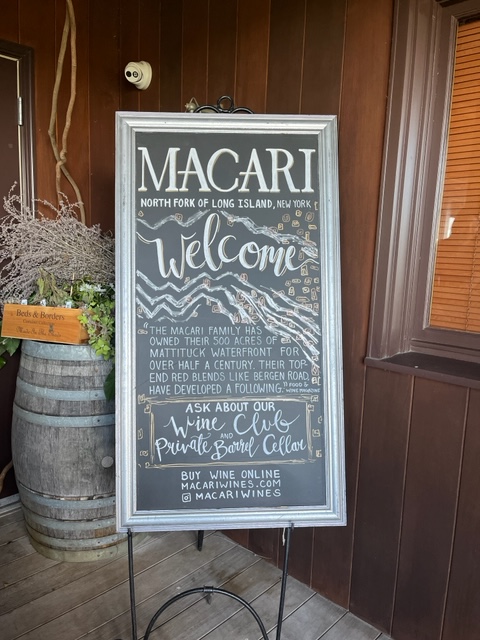 MACARI
NORTH FORK OF LONG ISLAND, NEW YORK
Welcome
"THE MACARI FAMILY HAS
OWNED THEIR 500 ACRES OF
MATTITUCK WATERFRONT FOR
OVER HALF A CENTURY. THEIR TOP-
END RED BLENDS LIKE BERGEN ROAD
HAVE DEVELOPED A FOLLOWING." FOOD &
WINE MAGAZINE
ASK ABOUT OUR
Wine Club
AND
Private Barrel Cellar
BUY WINE ONLINE
MACARIWINES.COM
MACARIWINES
Beds & Borders